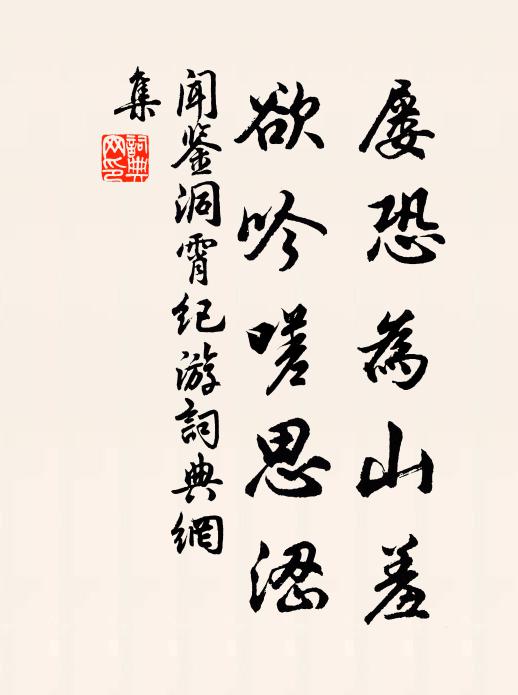 屡恐為山羞
欲吟嗟思澀
闻鉴洞霄纪游詞典網
集
詞典
网印